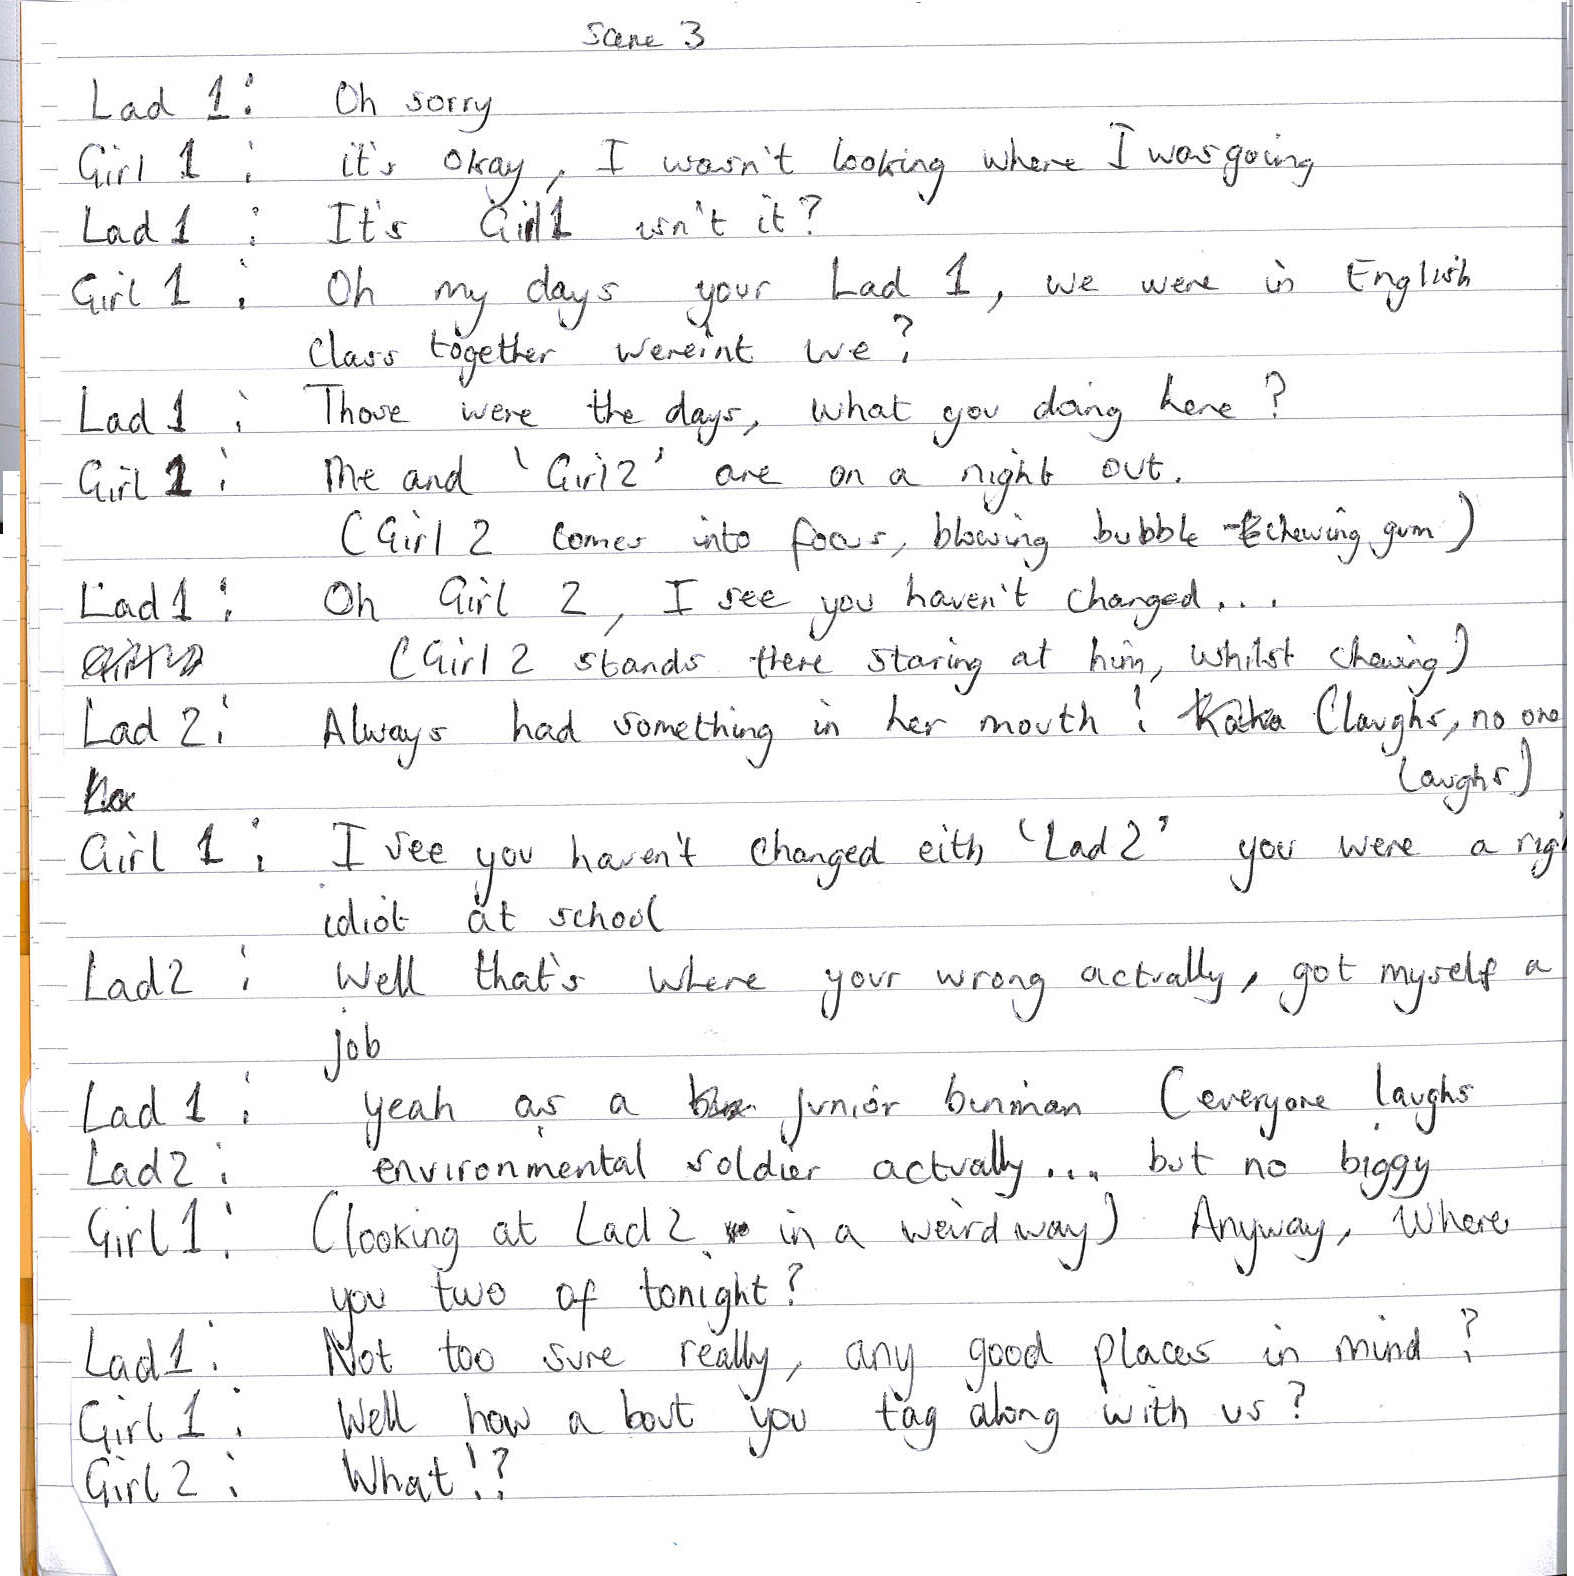 Scene 3
Lad 1: Oh sorry
Girl 1: it's okay, I wasn't looking where I was going
Lad 1: It's Girl 1 isn't it?
Girl 1: Oh my days your Lad 1, we were in English
class together wereint we?
Lad 1: Those were the days, what you doing here?
Girl 1: Me and 'Girl 2' are on a night out.
(Girl 2 comes into focus, blowing bubble chewing gum)
Lad 1: Oh Girl 2, I see you haven't changed...
(Girl 2 stands there staring at him, whilst chewing)
Lad 2: Always had something in her mouth! (laughs, no one
laughs)
Girl 1: I see you haven't changed eith 'Lad 2' you were a righ
idiot at school
Lad 2: Well that's where your wrong actually, got myself a
job
Lad 1: yeah as a junior binman (everyone laughs
Lad 2: environmental soldier actually... but no biggy
Girl 1: (looking at Lad 2 in a weird way) Anyway, where
you two of tonight?
Lad 1: Not too sure really, any good places in mind?
Girl 1: Well how a bout you tag along with us?
Girl 2: What!?